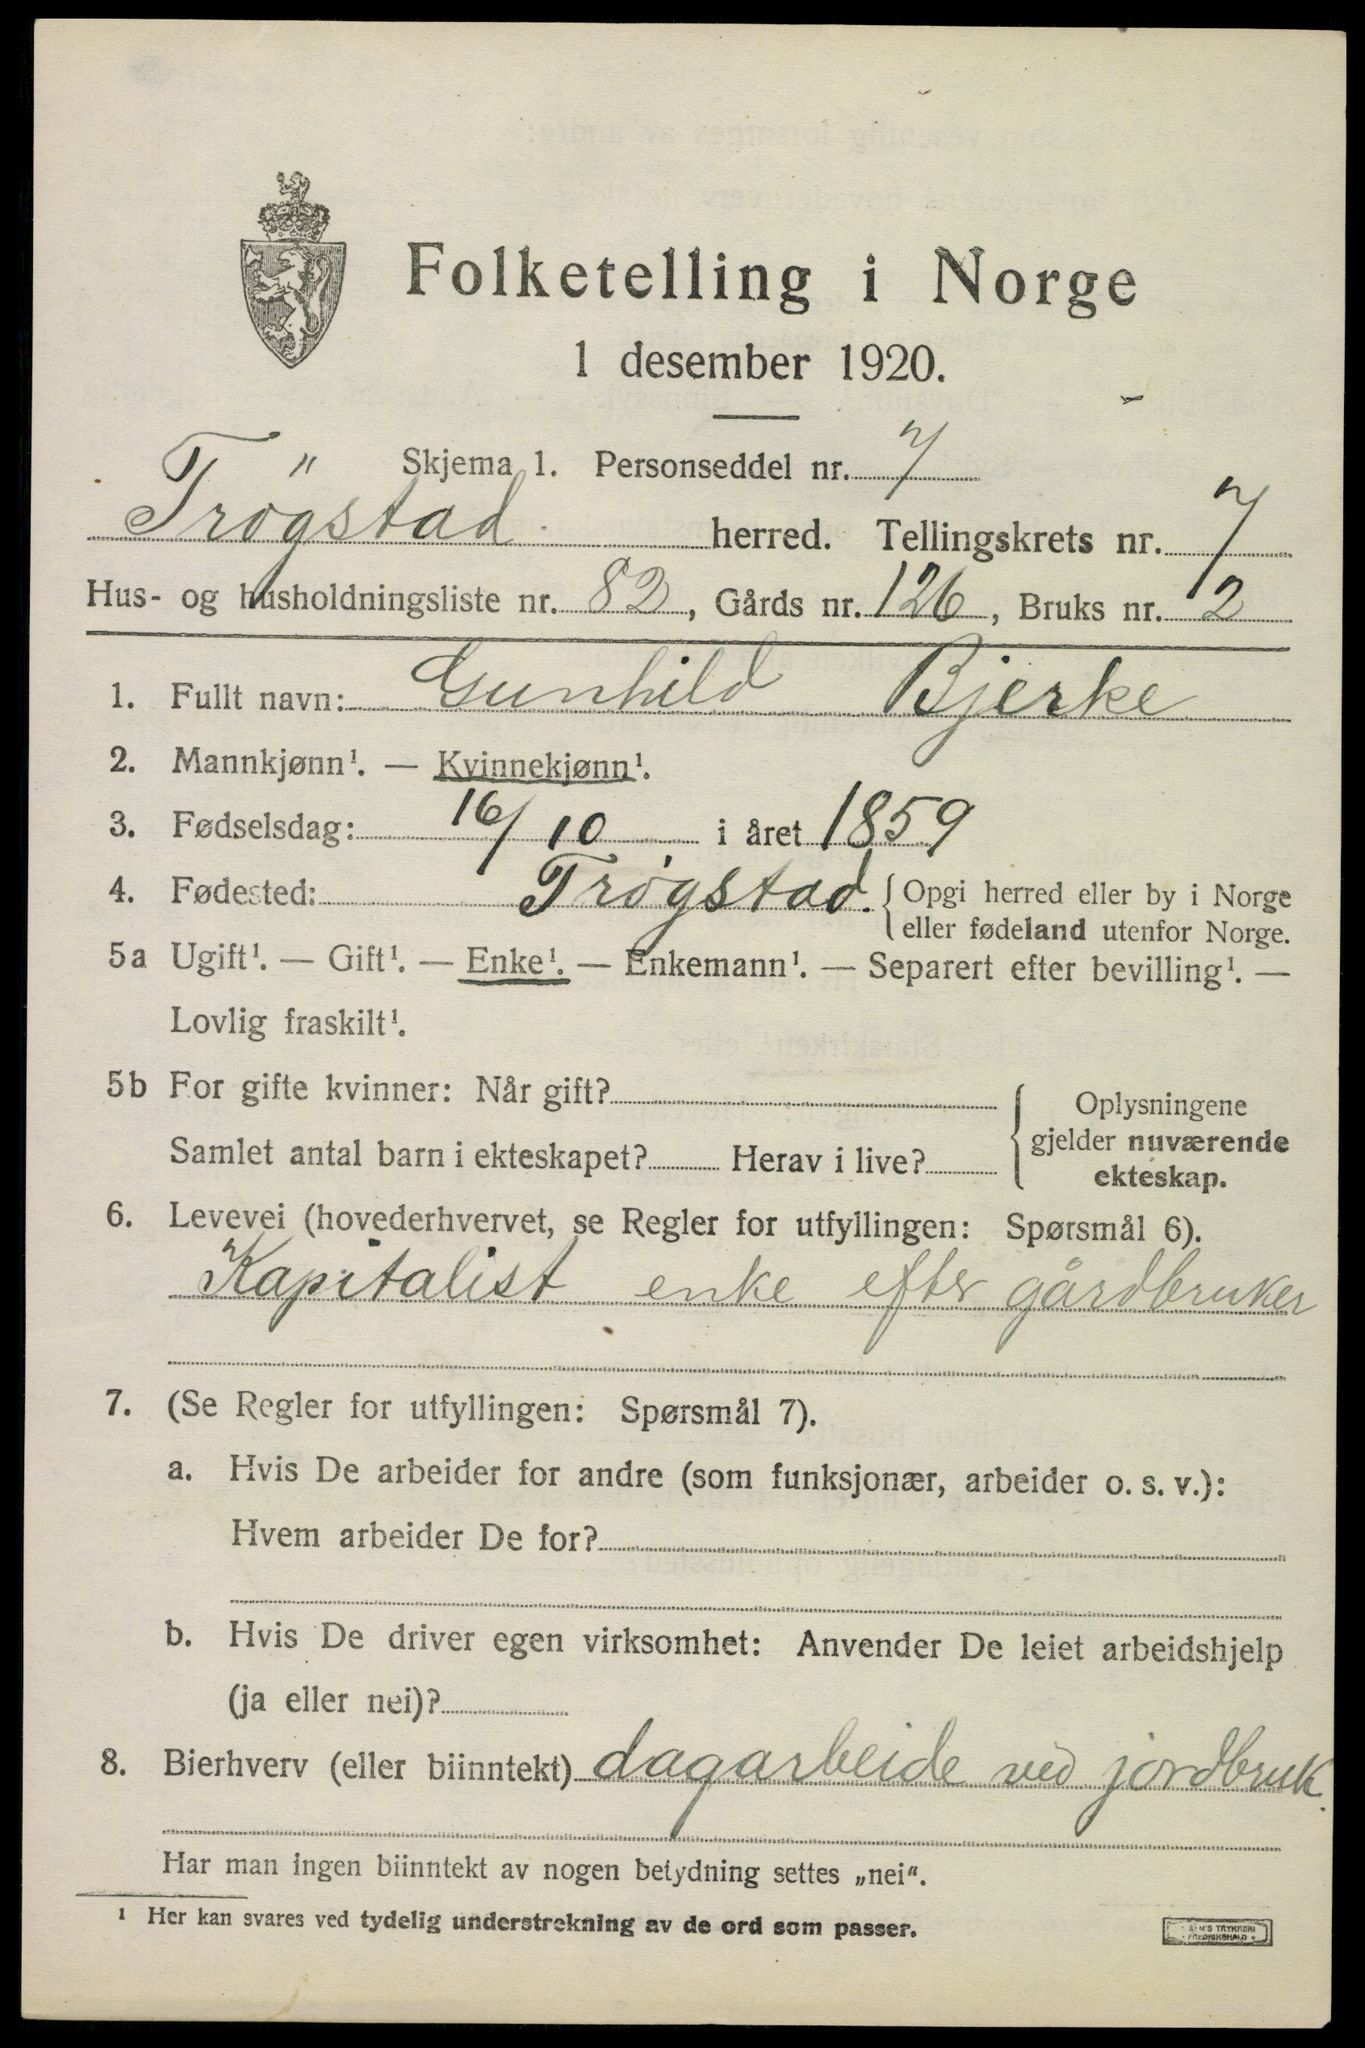 Folketelling i Norge
1 desember 1920.
Skjema 1. Personseddel nr. 7
Trögstad herred. Tellingskrets nr. 7
Hus- og husholdningsliste nr. 82, Gårds nr. 126, Bruks nr. 2
1. Fullt navn: Gunhild Bjerke
2. Mannkjønn¹. — Kvinnekjønn¹.
3. Fødselsdag: 16/10 i året 1859
4. Fødested: Trøgstad. { Opgi herred eller by i Norge
eller fødeland utenfor Norge.
5a Ugift¹. — Gift¹. — Enke¹. — Enkemann¹. — Separert efter bevilling¹. —
Lovlig fraskilt¹.
5b For gifte kvinner: Når gift?
Samlet antal barn i ekteskapet? Herav i live?
Oplysningene
gjelder nuværende
ekteskap.
6. Levevei (hovederhvervet, se Regler for utfyllingen: Spørsmål 6).
Kapitalist enke efter gårdbruker
7. (Se Regler for utfyllingen: Spørsmål 7).
a. Hvis De arbeider for andre (som funksjonær, arbeider o. s. v.):
Hvem arbeider De for?
b. Hvis De driver egen virksomhet: Anvender De leiet arbeidshjelp
(ja eller nei)?
8. Bierhverv (eller biinntekt) dagarbeide ved jordbruk.
Har man ingen biinntekt av nogen betydning settes „nei“.
¹ Her kan svares ved tydelig understrekning av de ord som passer.
SEM'S TRYKKERI
FREDRIKSHALD